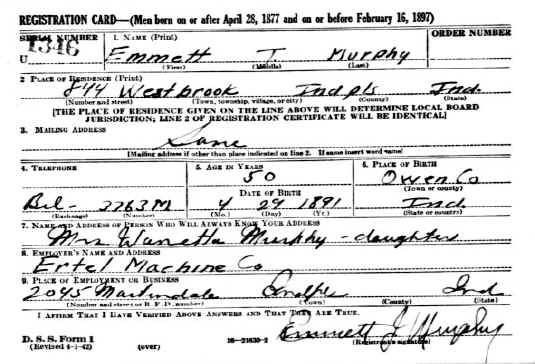 REGISTRATION CARD—(Men born on or after April 28, 1877 and on or before February 16, 1897)
SERIAL NUMBER 1. NAME (Print) ORDER NUMBER
1346
U Emmett J. Murphy
(First) (Middle) (Last)
2 PLACE OF RESIDENCE (Print)
844 Westbrook Indpls Ind.
(Number and street) (Town, township, village, or city) (County) (State)
[THE PLACE OF RESIDENCE GIVEN ON THE LINE ABOVE WILL DETERMINE LOCAL BOARD
JURISDICTION; LINE 2 OF REGISTRATION CERTIFICATE WILL BE IDENTICAL]
3. MAILING ADDRESS
Same
[Mailing address if other than place indicated on line 2. If same insert word same]
4. TELEPHONE 5. AGE IN YEARS 6. PLACE OF BIRTH
50 Owen Co
DATE OF BIRTH (Town or county)
Bel- 3763M 4 29 1891 Ind
(Exchange) (Number) (Mo.) (Day) (Yr.) (State or country)
7. NAME AND ADDRESS OF PERSON WHO WILL ALWAYS KNOW YOUR ADDRESS
Mrs Wanetta Murphy - daughter
8. EMPLOYER'S NAME AND ADDRESS
Ertel Machine Co
9. PLACE OF EMPLOYMENT OR BUSINESS
2045 Martindale Indpls Ind
(Number and street or R. F. D. number) (Town) (County) (State)
I AFFIRM THAT I HAVE VERIFIED ABOVE ANSWERS AND THAT THEY ARE TRUE.
D. S. S. Form 1
(Revised 4-1-42) (over) 16—21630-2 Emmett J Murphy
(Registrant's signature)